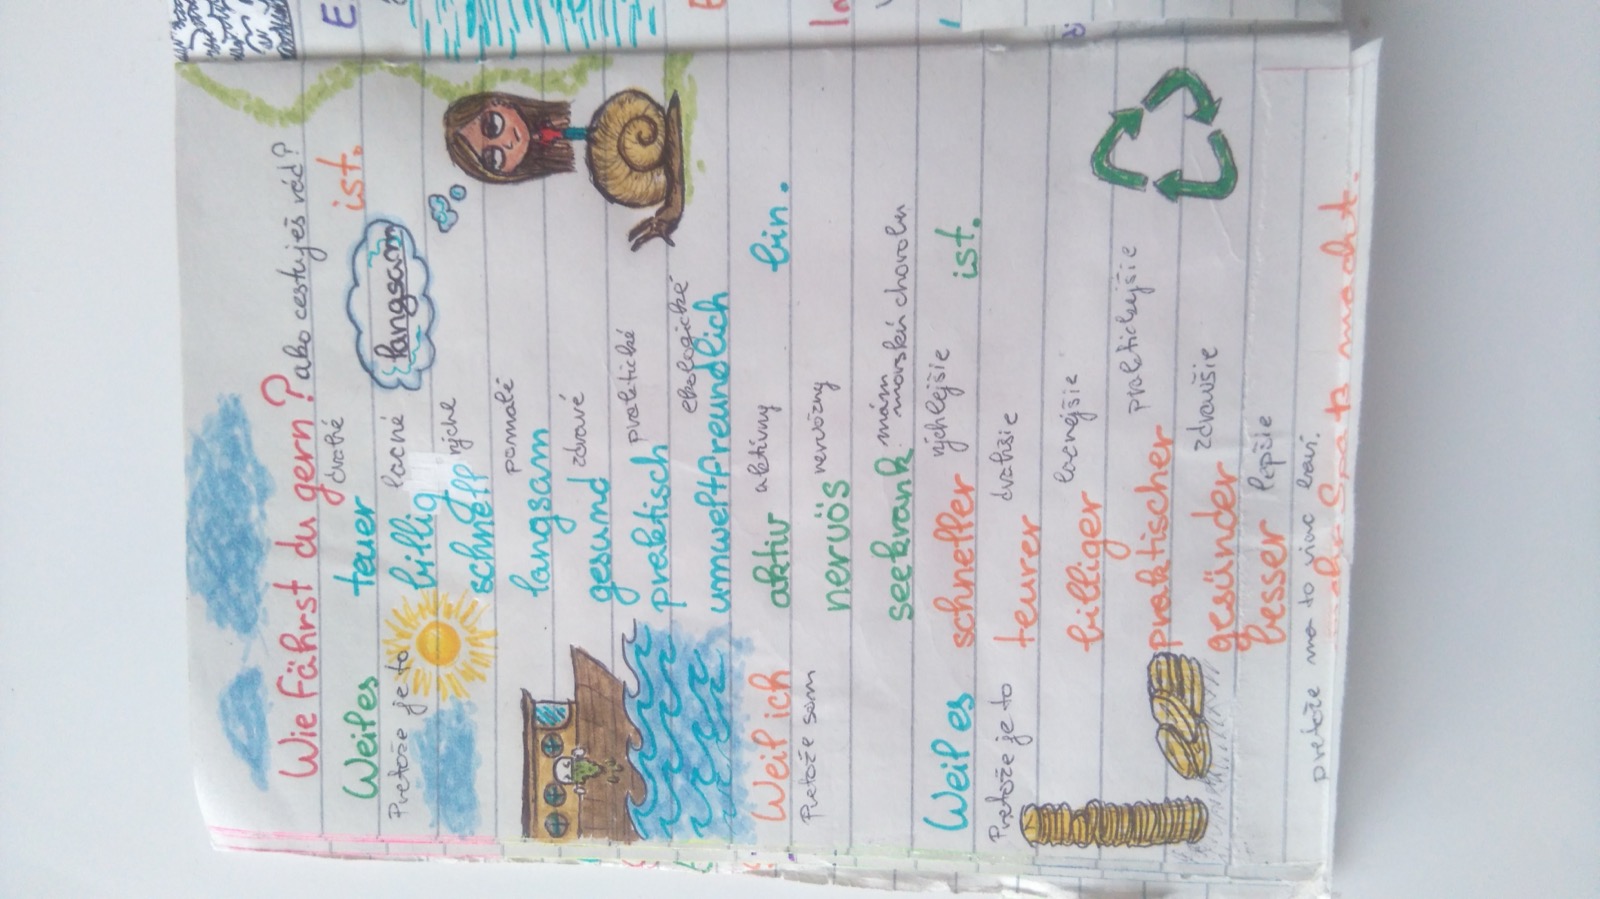 Wie fährst du gern? ako cestuješ rád?
Weil es teuer drahé ist.
Pretože je to billig lacné
langsam
schnell rýchle
langsam pomalé
gesund zdravé
praktisch praktické
umweltfreundlich ekologické
Weil ich aktiv aktívny bin.
Pretože som nervös nervózny
seekrank mám morskú chorobu
Weil es schneller rýchlejšie ist.
Pretože je to teurer drahšie
billiger lacnejšie
praktischer praktickejšie
gesünder zdravšie
besser lepšie
pretože ma to viac baví.
mehr Spaß macht.